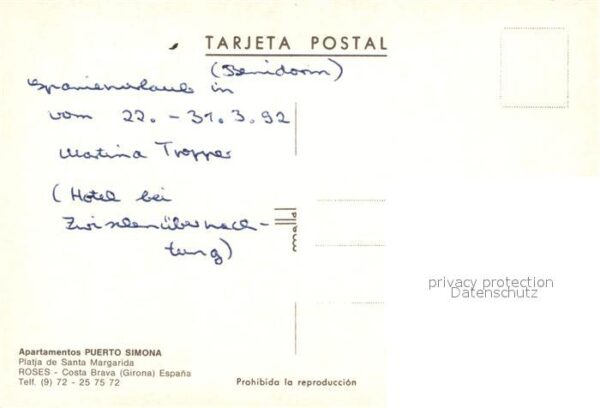 TARJETA POSTAL
(Benidorm)
Spanienurlaub in
vom 22. - 31.3.92
Martina Tropper
(Hotel bei
Zwischenübernach-
tung)
privacy protection
Datenschutz
Apartamentos PUERTO SIMONA
Platja de Santa Margarida
ROSES - Costa Brava (Girona) España
Telf. (9) 72 - 25 75 72
Prohibida la reproducción